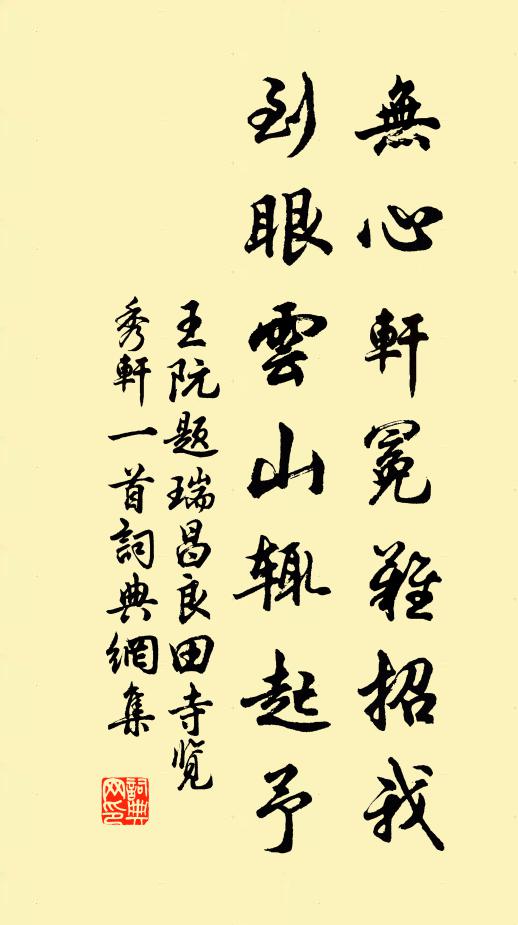 無心軒冕難招我
到眼雲山辄起予
王阮题瑞昌良田寺览
秀軒一首詞典網集
詞典網印